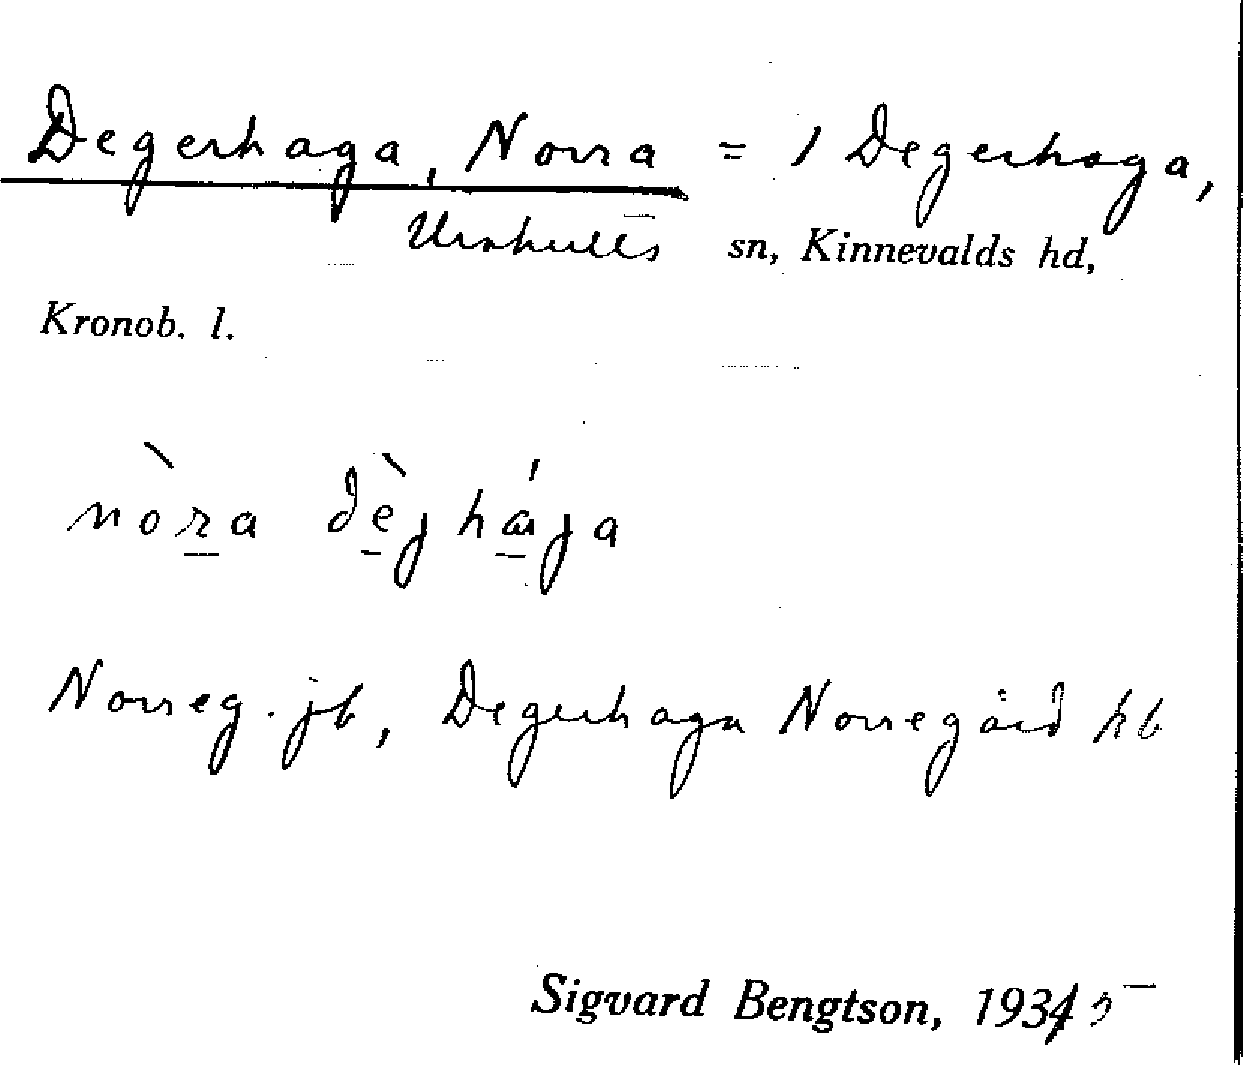 Degerhaga, Norra = 1 Degerhaga,
Urshults sn, Kinnevalds hd,
Kronob. l.
nòra dèjhája
Norreg. jb, Degerhaga Norregård hb
Sigvard Bengtson, 1935